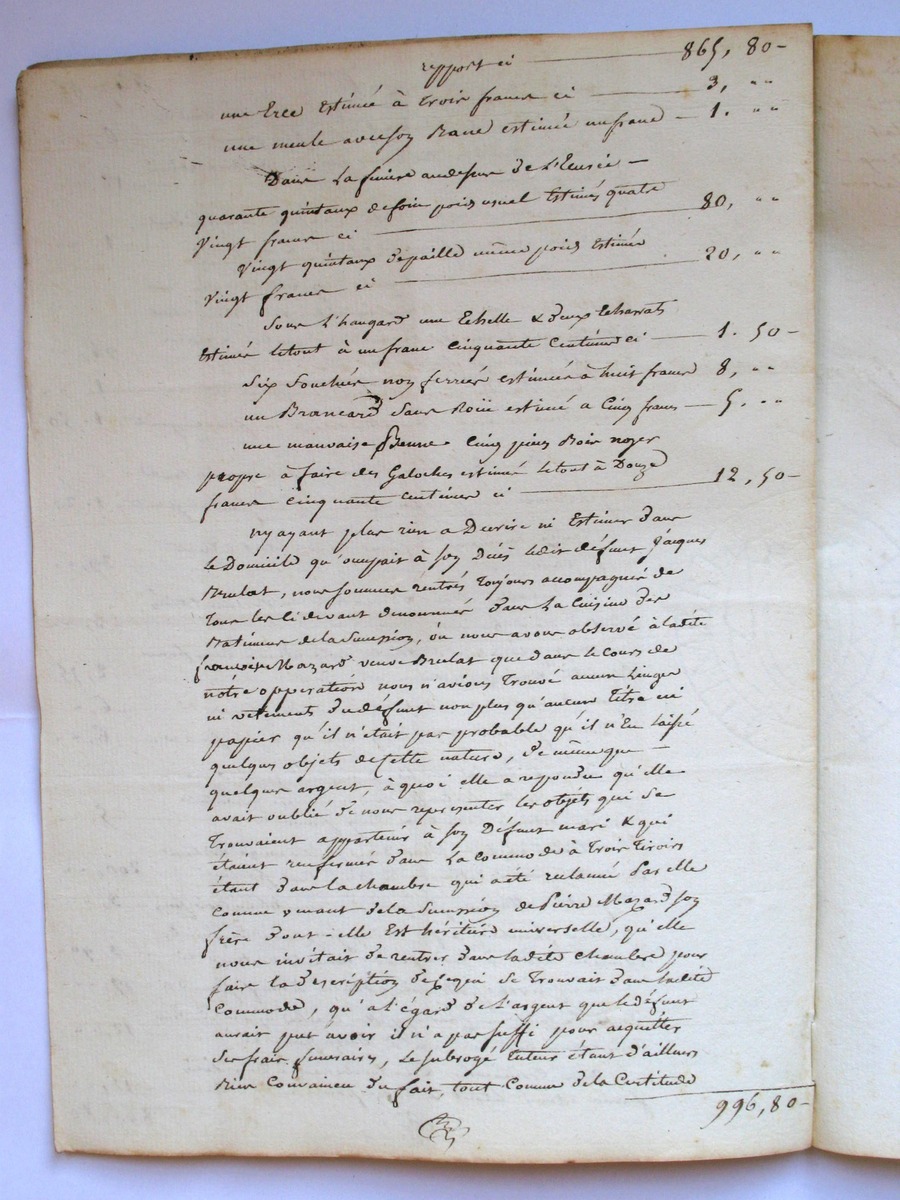 rapport ci 865, 80-
une Ecce Estimée à trois francs ci 3, " "
une meule avec son Banc estimée un franc - 1. " "
Dans La feniere au dessus de L'Ecurie -
quarante quintaux de foin poids usuel Estimés quatre
Vingt francs ci 80, " "
Vingt quintaux de paille même poids Estimée
Vingt francs ci 20, " "
Sous L'hangard une Echelle & deux Echarats
Estimée letout à un franc Cinquante Centimes ci 1. 50-
Six Souches non ferrées estimées à huit francs 8, " "
un Brancard Sans Roüe estimé a Cinq francs - 5. " "
une mauvaise Benne Cinq pieces Bois noyer
propre à faire des Galoches estimé letout à Douze
francs Cinquante Centimes ci 12, 50-
n'y ayant plus rien a Decrire ni Estimer dans
Le Domicile qu'occupait à son Décés Ledit défunt Jacques
Brulat, nous sommes rentrés toujours accompagnés de
tous les ci devant denommés dans La Cuisine des
Batimens de la Succession, où nous avons observé à ladite
françoise Mazard veuve Brulat que dans le Cours de
nôtre opperation nous n'avions trouvé aucun Linges
ni vetements du défunt non plus qu'aucun titre ni
papier qu'il n'était pas probable qu'il n'Eu Laissé
quelques objets de Cette nature, de même que -
quelque argent, à quoi elle a repondu qu'elle
avait oublié de nous representer les objets qui se
trouvaient appartenir à son Défunt mari & qui
étaient renfermés dans La Commode à trois tiroirs
étant dans la chambre qui a été reclamé Par elle
Comme venant de la Succession de Pierre Mazard son
frère dont-elle Est héritiere universelle, qu'elle
nous invitait de rentrer dans ladite Chambre pour
faire la description de Ce qui Se trouvait dans ladite
Commode, qu'a l'égard de L'argent que le défunt
aurait put avoir il n'a pas suffi pour acquitter
Ses frais funeraires, Le subrogé tuteur étant d'ailleurs
Bien Convaincu du fait, tout Comme de la Certitude
996, 80-